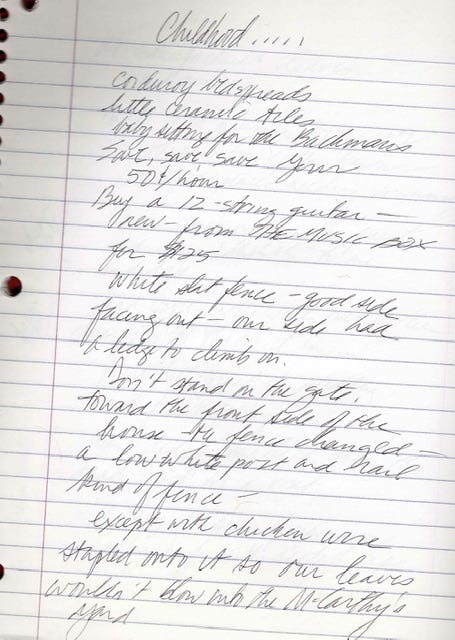 Childhood.....
corduroy bedspreads
little ceramic tiles
baby sitting for the Bachmans
Save, save, save your
50¢/hour
Buy a 12-string guitar —
new — from THE MUSIC BOX
for $125
White slat fence — good side
facing out — our side had
a ledge to climb on.
Don't stand on the gate.
toward the front side of the
house the fence changed —
a low white post and rail
kind of fence —
except with chicken wire
stapled onto it so our leaves
wouldn't blow into the McCarthy's
yard